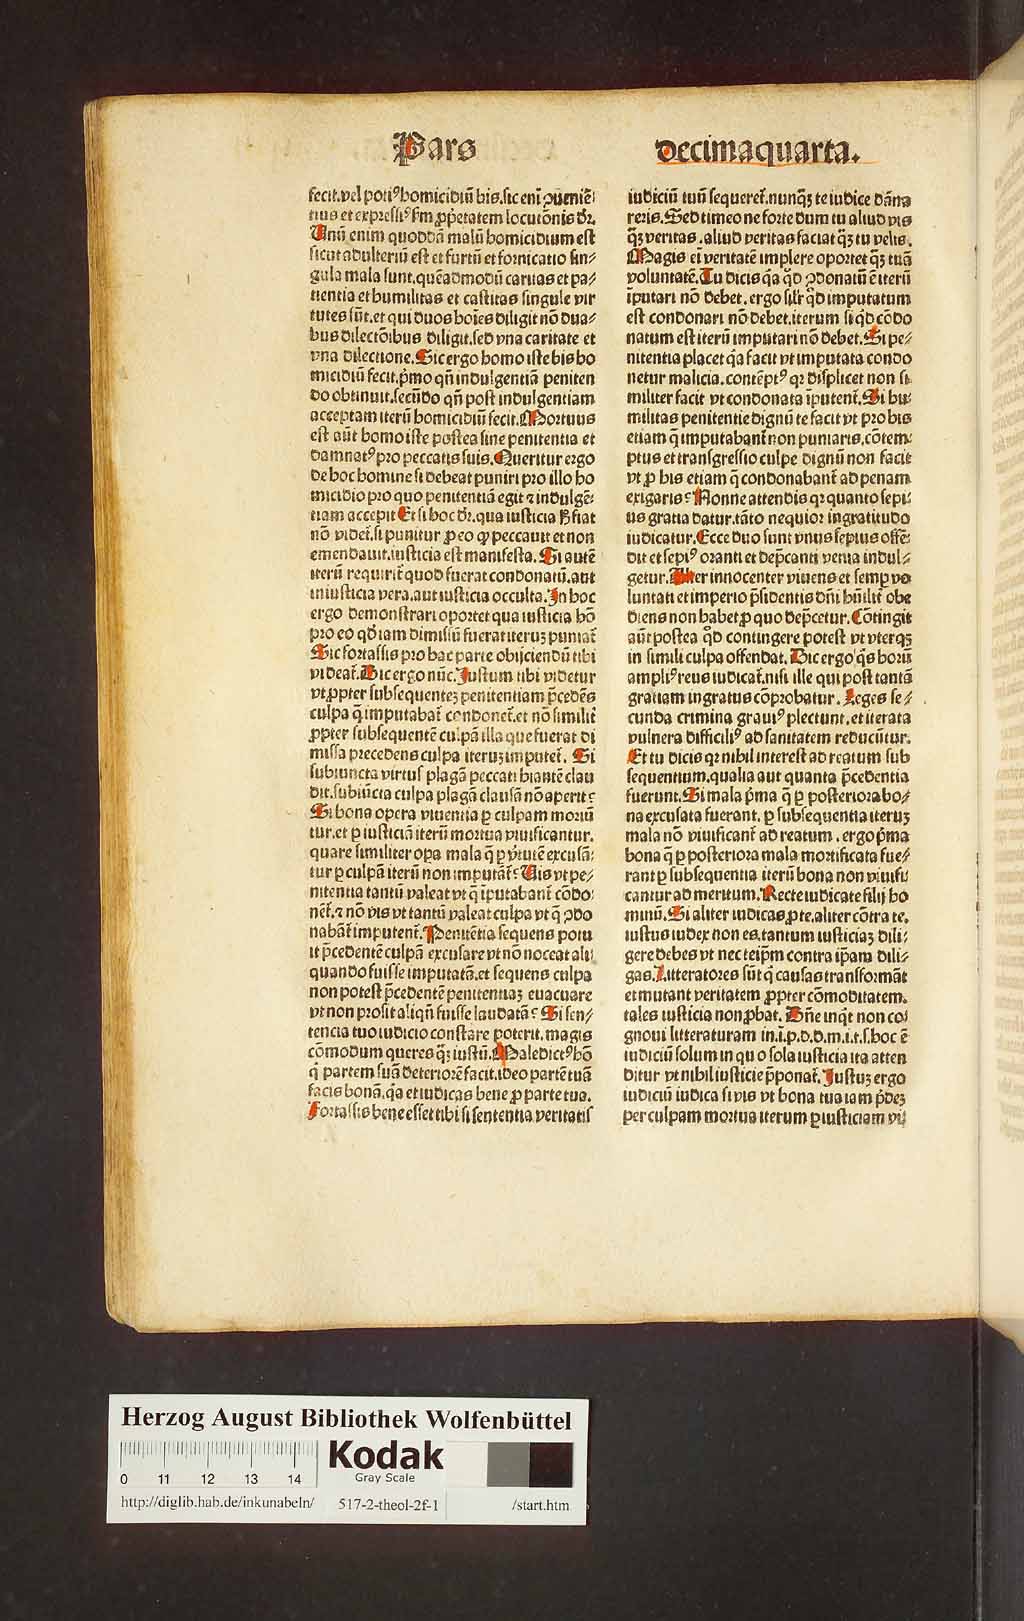 Pars
decimaquarta.
fecit.vel potiꝰ homicidiū bis.sic enī ꝯueniē⸗
tius et expressiꝰ ẜm ꝓp̄etatem locutōnis dr̄.
Unū enim quoddā malū homicidium est
sicut adulteriū est et furtū et fornicatio sin⸗
gula mala sunt.quēadmodū caritas et pa⸗
tientia et humilitas et castitas singule vir
tutes sūt.et qui duos hoīes diligit nō dua⸗
bus dilectōibus diligit.sed vna caritate et
vna dilectione. Sic ergo homo iste bis ho
micidiū fecit.pͥmo qn̄ indulgentiā peniten
do obtinuit.secūdo qn̄ post indulgentiam
acceptam iterū homicidiū fecit. Mortuus
est aūt homo iste postea sine penitentia et
damnatꝰ pro peccatis suis. Queritur ergo
de hoc homine si debeat puniri pro illo ho
micidio pro quo penitentiā egit ⁊ indulgē⸗
tiam accepit Et si hoc dr̄.qua iusticia h̄ fiat
nō videt᷑.si punitur ꝓ eo ꝙ peccauit et non
emendauit.iusticia est manifesta. Si autē
iterū requirit᷑ quod fuerat condonatū.aut
iniusticia vera.aut iusticia occulta. In hoc
ergo demonstrari oportet qua iusticia hō
pro eo qd̄ iam dimissū fuerat iteruꝫ puniat᷑
Sic fortassis pro hac parte obijciendū tibi
videat᷑. Dic ergo nūc. Iustum tibi videtur
vt ꝓpter subsequenteꝫ penitentiam p̄cedēs
culpa q̄ imputabat᷑ condonet᷑.et nō similit᷑
ꝓpter subsequentē culpā illa que fuerat di
missa precedens culpa iteruꝫ imputet᷑. Si
subiuncta virtus plagā peccati hiantē clau
dit.subiūcta culpa plagā clausā nō aperit?
Si bona opera viuentia ꝑ culpam moriū
tur.et ꝑ iusticiā iterū mortua viuificantur.
quare similiter oꝑa mala q̄ ꝑ v̓tutē excusā⸗
tur ꝑ culpā iterū non imputāt᷑? Uis vt pe⸗
nitentia tantū valeat vt q̄ īputabant᷑ cōdo⸗
nēt᷑.⁊ nō vis vt tantū valeat culpa vt q̄ ꝯdo
nabāt᷑ imputent᷑. Penitētia sequens potu
it p̄cedentē culpā excusare vt nō noceat ali⸗
quando fuisse imputatā.et sequens culpa
non potest p̄cedentē penitentiaꝫ euacuare
vt non prosit aliqn̄ fuisse laudatā? Si sen⸗
tencia tuo iudicio constare poterit.magis
cōmodum queres qꝫ iustū. Maledictꝰ hō
qͥ partem suā deteriorē facit.ideo partē tuā
facis bonā.qͣ et iudicas bene ꝓ parte tua.
Fortassis bene esset tibi si sententia veritatis
iudiciū tuū sequeret᷑.nunqꝫ te iudice dāna
reris. Sed timeo ne forte dum tu aliud vis
qꝫ veritas.aliud veritas faciat qꝫ tu velis.
Magis em̄ veritatē implere oportet qꝫ tuā
voluntatē. Tu dicis qͣ qd̄ ꝯdonatū ē iterū
īputari nō debet.ergo silr̄ qd̄ imputatum
est condonari nō debet.iterum si qd̄ cōdo
natum est iterū imputari nō debet. Si pe⸗
nitentia placet qͣ facit vt imputata condo
netur malicia.contēptꝰ qꝛ displicet non si
militer facit vt condonata īputent᷑. Si hu⸗
militas penitentie dignū te facit vt pro his
etiam q̄ imputabant᷑ non puniaris.cōtem⸗
ptus et transgressio culpe dignū non facit
vt ꝓ his etiam q̄ condonabant᷑ ad penam
exigaris? Nonne attendis qꝛ quanto sepi⸗
us gratia datur.tāto nequior ingratitudo
iudicatur. Ecce duo sunt vnus sepius offē⸗
dit et sepiꝰ oranti et dep̄canti venia indul⸗
getur. Alter innocenter viuens et semꝑ vo
luntati et imperio p̄sidentis dn̄i hūilit᷑ obe
diens non habet ꝓ quo dep̄cetur. Cōtingit
aūt postea qd̄ contingere potest vt vterqꝫ
in simili culpa offendat. Dic ergo qͥs horū
ampliꝰ reus iudicat᷑.nisi ille qui post tantā
gratiam ingratus cōprobatur. Leges se⸗
cunda crimina grauiꝰ plectunt.et iterata
vulnera difficiliꝰ ad sanitatem reducūtur.
Et tu dicis qꝛ nihil interest ad reatum sub
sequentium.qualia aut quanta p̄cedentia
fuerunt. Si mala pͥma q̄ ꝑ posteriora bo⸗
na excusata fuerant.ꝑ subsequentia iteruꝫ
mala nō viuificant᷑ ad reatum.ergo pͥma
bona q̄ ꝑ posteriora mala mortificata fue⸗
rant ꝑ subsequentia iterū bona non viuifi
cantur ad meritum. Recte iudicate filij ho
minū. Si aliter iudicas ꝓ te.aliter cōtra te.
iustus iudex non es.tantum iusticiaꝫ dili⸗
gere debes vt nec teip̄m contra ip̄am dili⸗
gas. Litteratores sūt qͥ causas transformāt
et mutant veritatem ꝓpter cōmoditatem.
tales iusticia non ꝓbat. Dn̄e inqͥt non co⸗
gnoui litteraturam in.i.p.d.d.m.i.t.s.hoc ē
iudiciū solum in quo sola iusticia ita atten
ditur vt nihil iusticie p̄ponat᷑. Iustuꝫ ergo
iudiciū iudica si vis vt bona tua iam pͥdeꝫ
per culpam mortua iterum ꝑ iusticiam vi⸗
Herzog August Bibliothek Wolfenbüttel
Kodak
Gray Scale
0 11 12 13 14
http://diglib.hab.de/inkunabeln/ 517-2-theol-2f-1 /start.htm